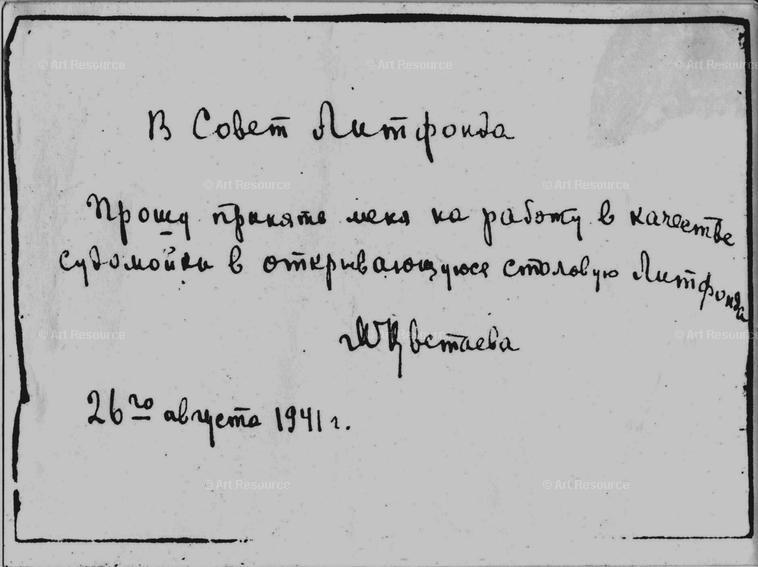 В Совет Литфонда
Прошу принять меня на работу в качестве
судомойки в открывающуюся столовую Литфонда
МЦветаева
26го августа 1941 г.
© Art Resource
© Art Resource
© Art Resource
© Art Resource
© Art Resource
© Art Resource
© Art Resource
© Art Resource
© Art Resource
© Art Resource